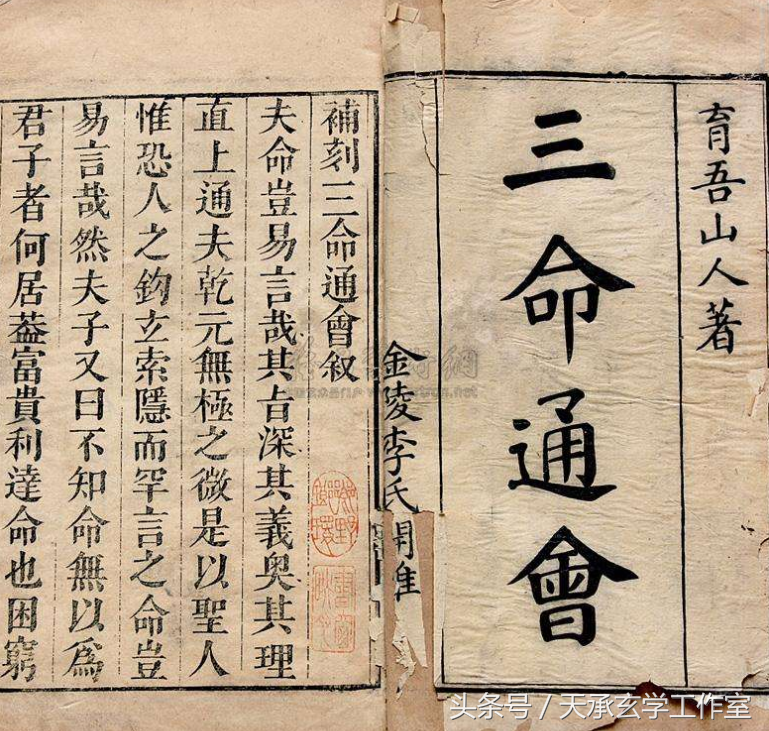 育吾山人著
三命通會
金陵李氏
補刻三命通會叙
夫命豈易言哉其㫖深其義奧其理
直上通夫乾元無極之微是以聖人
惟恐人之鈎玄索隱而罕言之命豈
易言哉然夫子又曰不知命無以為
君子者何居葢富貴利達命也困窮
头条号 / 天承玄学工作室